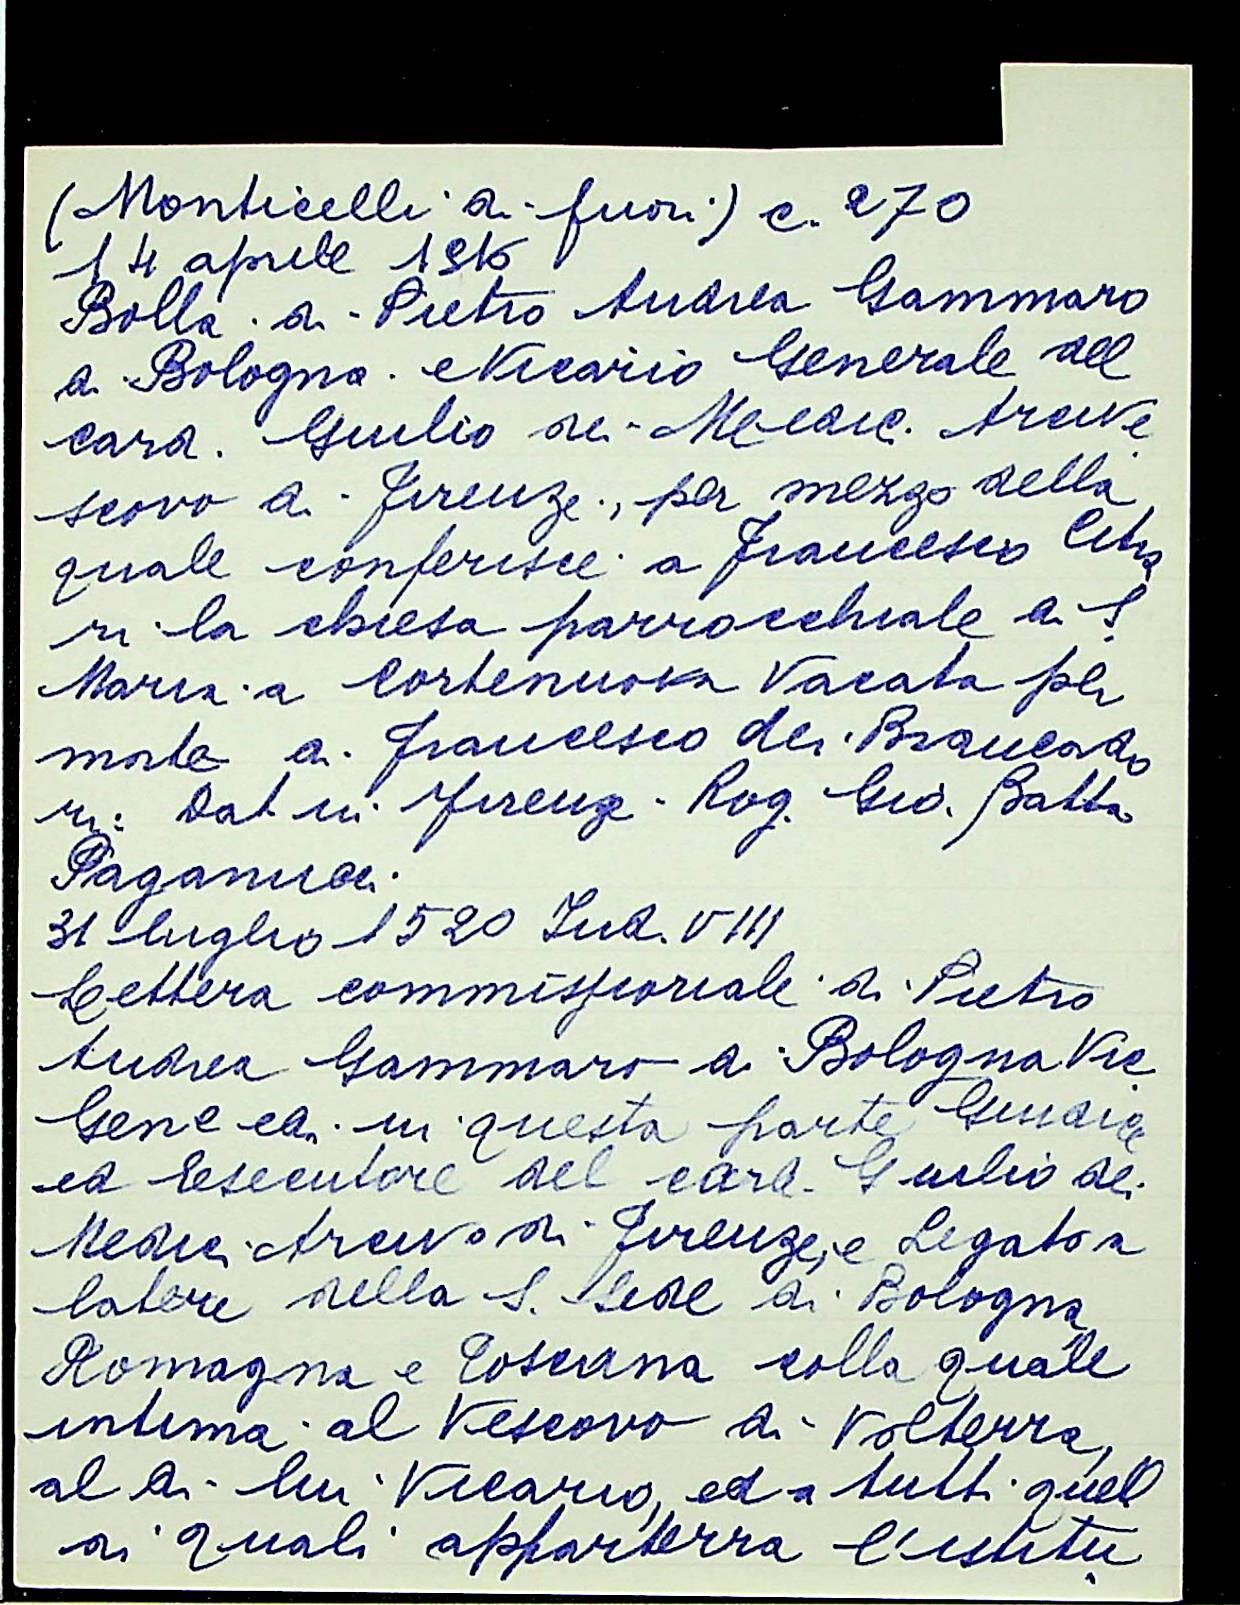 (Monticelli di fuori) c. 270
14 aprile
Bolla di Pietro Andrea Gammaro
di Bologna e Vicario Generale del
card. Giulio dei Medici Arcive
scovo di Firenze, per mezzo della
quale conferisce a Francesco
ri la chiesa parrocchiale di S.
Maria a Cortenuova vacata per
morte di Francesco dei Brancado
ri: Dat in Firenze - Rog. Gio. Batta
Paganucci.
31 luglio 1520 Ind. VIII
Lettera commissoriale di Pietro
Andrea Gammaro di Bologna Vic.
Gene ed in questa parte Giudice
ed Esecutore del card. Giulio dei
Medici Arcivo di Firenze, e Legato a
latere della S. Sede di Bologna
Romagna e Toscana colla quale
intima al Vescovo di Volterra,
al di lui Vicario, ed a tutti quelli
ai quali apparterra l'istitu